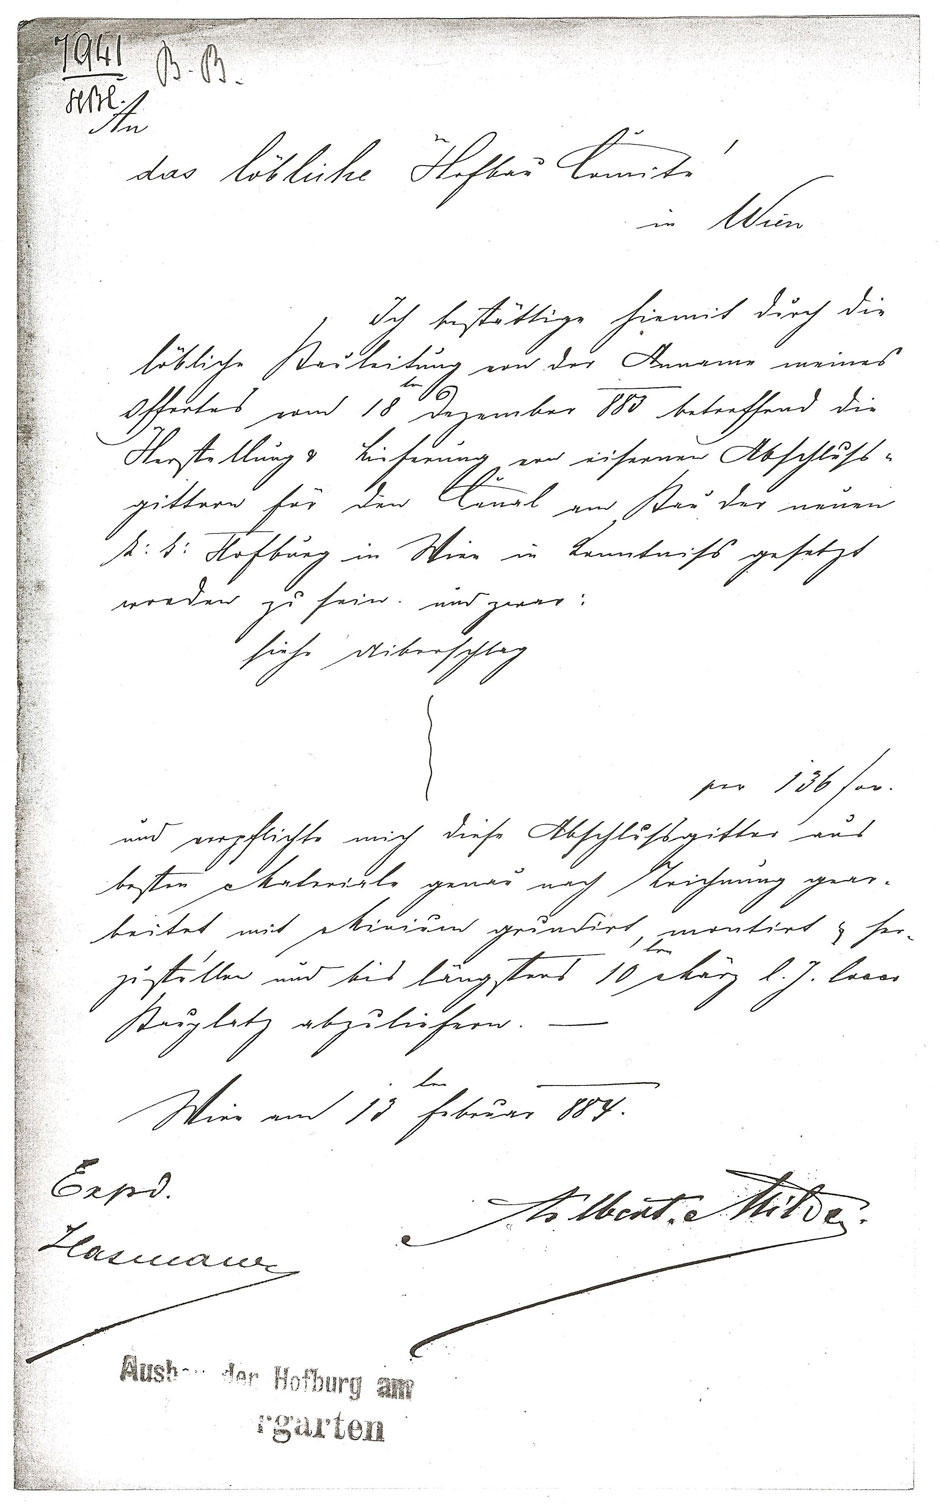 7941
B. B.
An
das löbliche Hofbau Comité
in Wien
Ich bestättige hiemit durch die
löbliche Bauleitung von der Anname meines
Offertes vom 18ten Dezember 883 betreffend die
Herstellung & Lieferung von eisernen Abschluss-
gittern für den Canal am Bau der neuen
k: k: Hofburg in Wien in Kenntniss gesetzt
worden zu sein. und zwar:
siehe Überschlag
per 136
und verpflichte mich diese Abschlussgitter aus
besten Materiale genau nach Zeichnung gear-
beitet mit Minium grundirt, montirt & her-
zustellen und bis längstens 10ten März l. J. loco
Bauplatz abzuliefern. —
Wien am 13ten Februar 884.
Expd.
Albert Milde
Hasmann
Ausbau der Hofburg am
rgarten